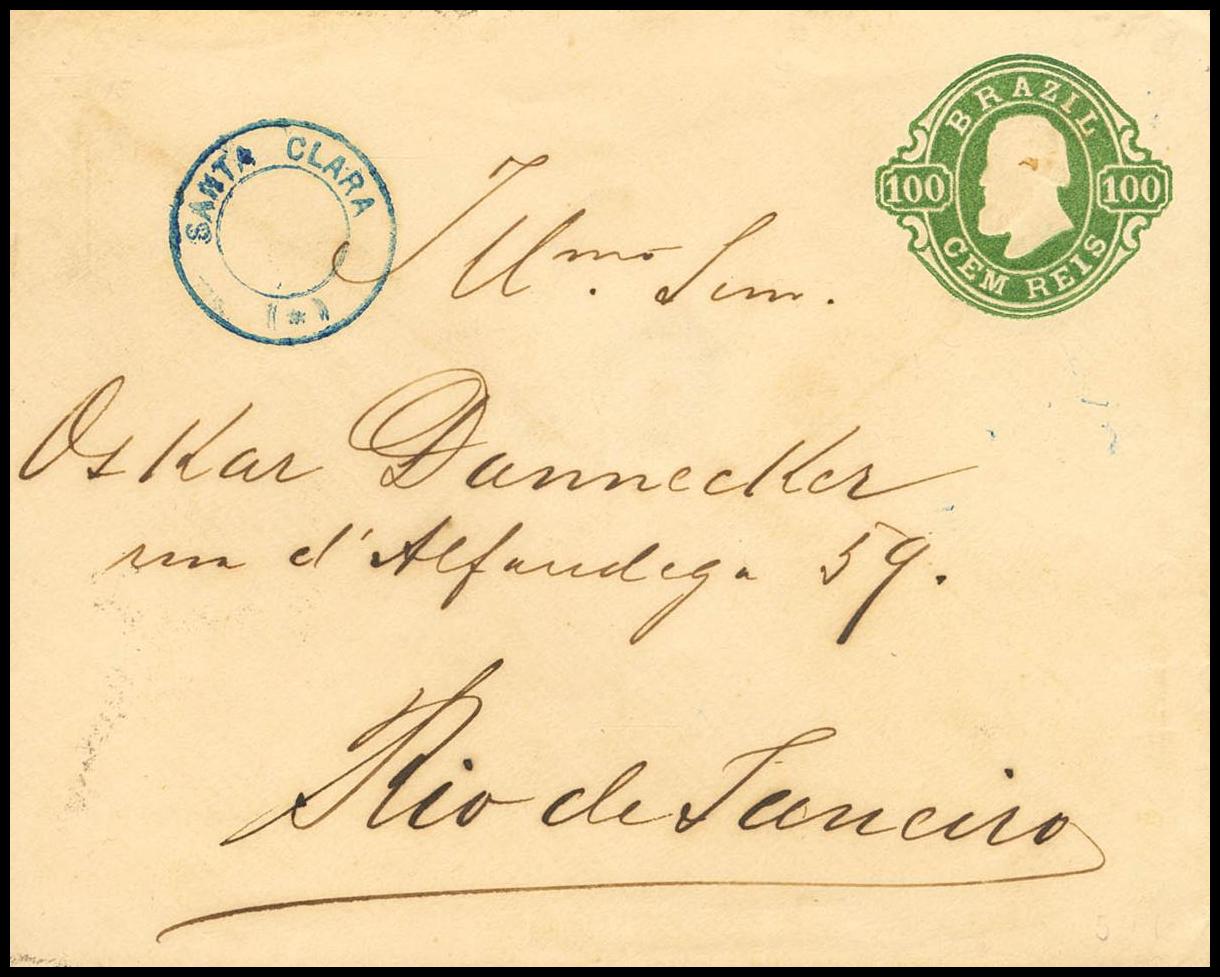 SANTA CLARA
(*)
BRAZIL
100 100
CEM REIS
Illmo. Snr.
Oskar Dannecker
rua d'Alfandega 59.
Rio de Janeiro